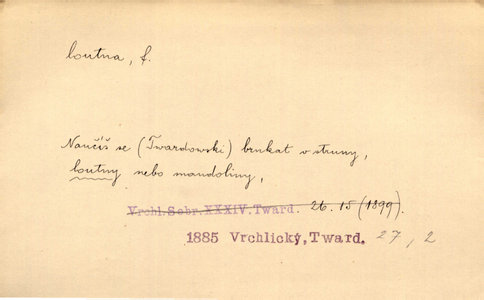 loutna, f.
Naučíš se (Twardowski) brnkat v struny,
loutny nebo mandoliny,
Vrchl.Sebr.XXXIV.Tward. 26. 15 (1899).
1885 Vrchlický,Tward. 27, 2